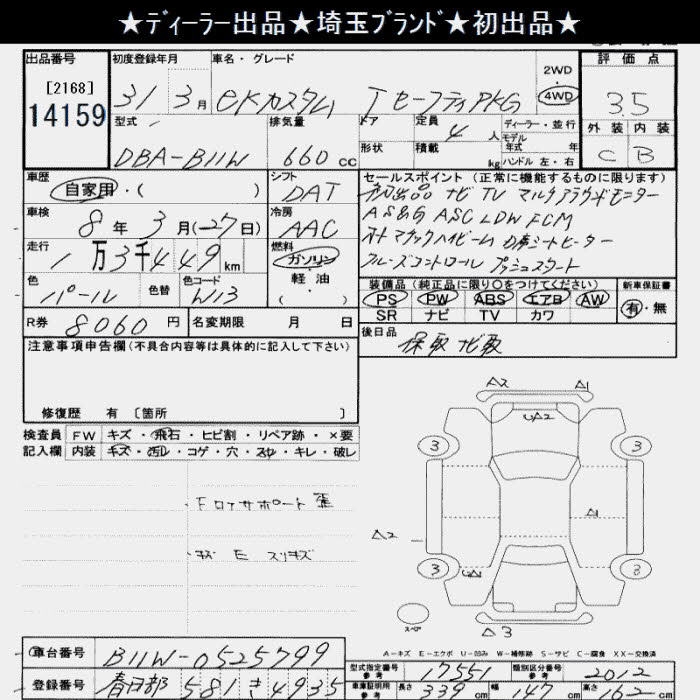 ★ディーラー出品★埼玉ブランド★初出品★
出品番号
[2168]
14159
初度登録年月
31 3 月
車名・グレード
eKカスタム T セーフティPKG
2WD
4WD
評価点
3.5
外装 内装
C B
型式
DBA-B11W
排気量
660 cc
ドア
形状
定員
4 人
積載
kg
ディーラー・並行
モデル
年式 年
ハンドル 左・右
車歴
自家用・( )
シフト
DAT
車検
8 年 3 月(27日)
冷房
AAC
走行
1 万 3 千 4 4 9 km
燃料
ガソリン
・
軽・油
( )
色
パール
色替
色コード
W13
R券
8060 円
名変期限 月 日
セールスポイント (正常に機能するものに限ります)
初出品 ナビ TV マルチアラウンドモニター
AS&G ASC LDW FCM
オートマチックハイビーム D席シートヒーター
クルーズコントロール プッシュスタート
装備品 (純正品に限り○をつけてください)
新車保証書
PS PW ABS エアB AW
SR ナビ TV カワ
有・無
後日品
保取 ナビ取
注意事項申告欄(不具合内容等は具体的に記入して下さい)
修復歴 有 〔箇所 〕
検査員
記入欄
FW キズ・飛石・ヒビ割・リペア跡・×要
内装 キズ・汚れ・コゲ・穴・スレ・キレ・破レ
Fロアサポート 歪
キズ E スリキズ
A2 A1
UA2
3 3
A1
A2
3 UA1 3
スペア
A3
A-キズ E-エクボ U-凹み W-補修跡 S-サビ C-腐食 XX-交換済
車台番号
B11W-0525799
登録番号
春日部 581 き 4935
型式指定番号
参考
17551
類別区分番号
参考
2012
車庫証明用
参考
長さ 339 cm 幅 147 cm 高さ 162 cm